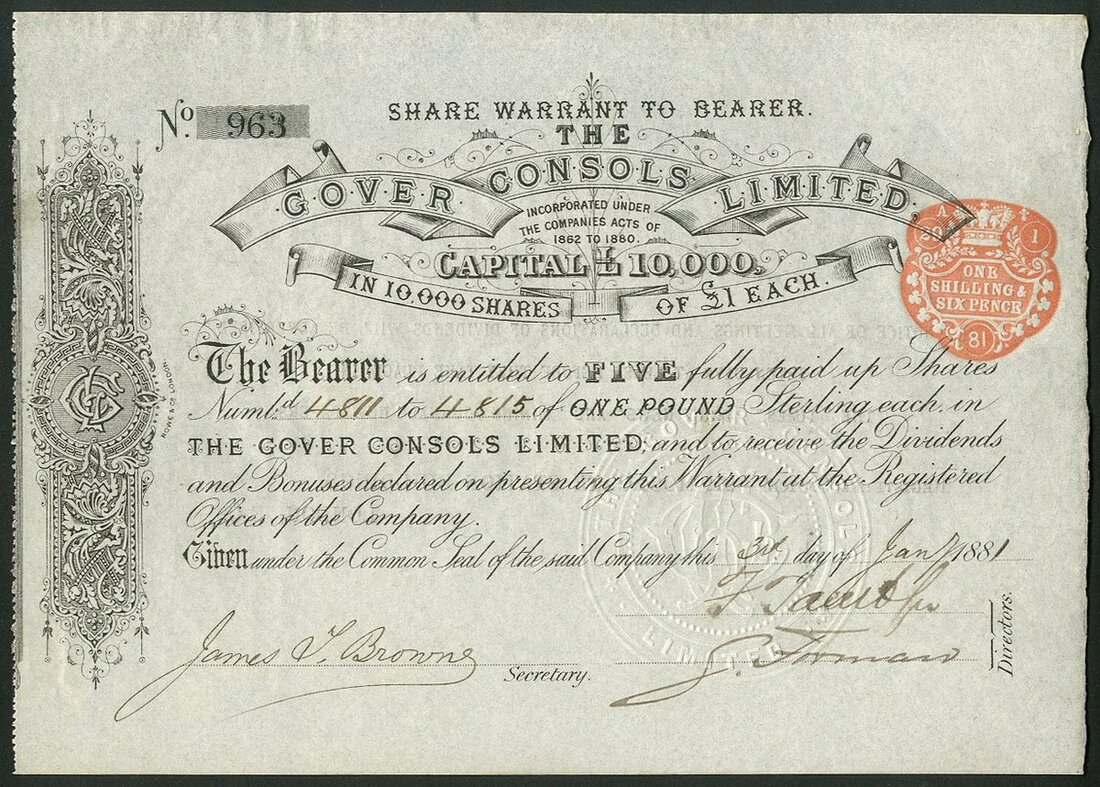 No. 963
SHARE WARRANT TO BEARER.
THE
GOVER CONSOLS LIMITED.
INCORPORATED UNDER
THE COMPANIES ACTS OF
1862 TO 1880.
CAPITAL £10,000,
IN 10,000 SHARES OF £1 EACH.
ONE
SHILLING &
SIX PENCE
A
1
81
The Bearer is entitled to FIVE fully paid up Shares
Numb.d 4811 to 4815 of ONE POUND Sterling each, in
THE GOVER CONSOLS LIMITED, and to receive the Dividends
and Bonuses declared on presenting this Warrant at the Registered
Offices of the Company.
Given under the Common Seal of the said Company this 3rd day of Jany 1881
Directors.
James T. Browne
Secretary.
ROWE & CO. LONDON.
LIMITED